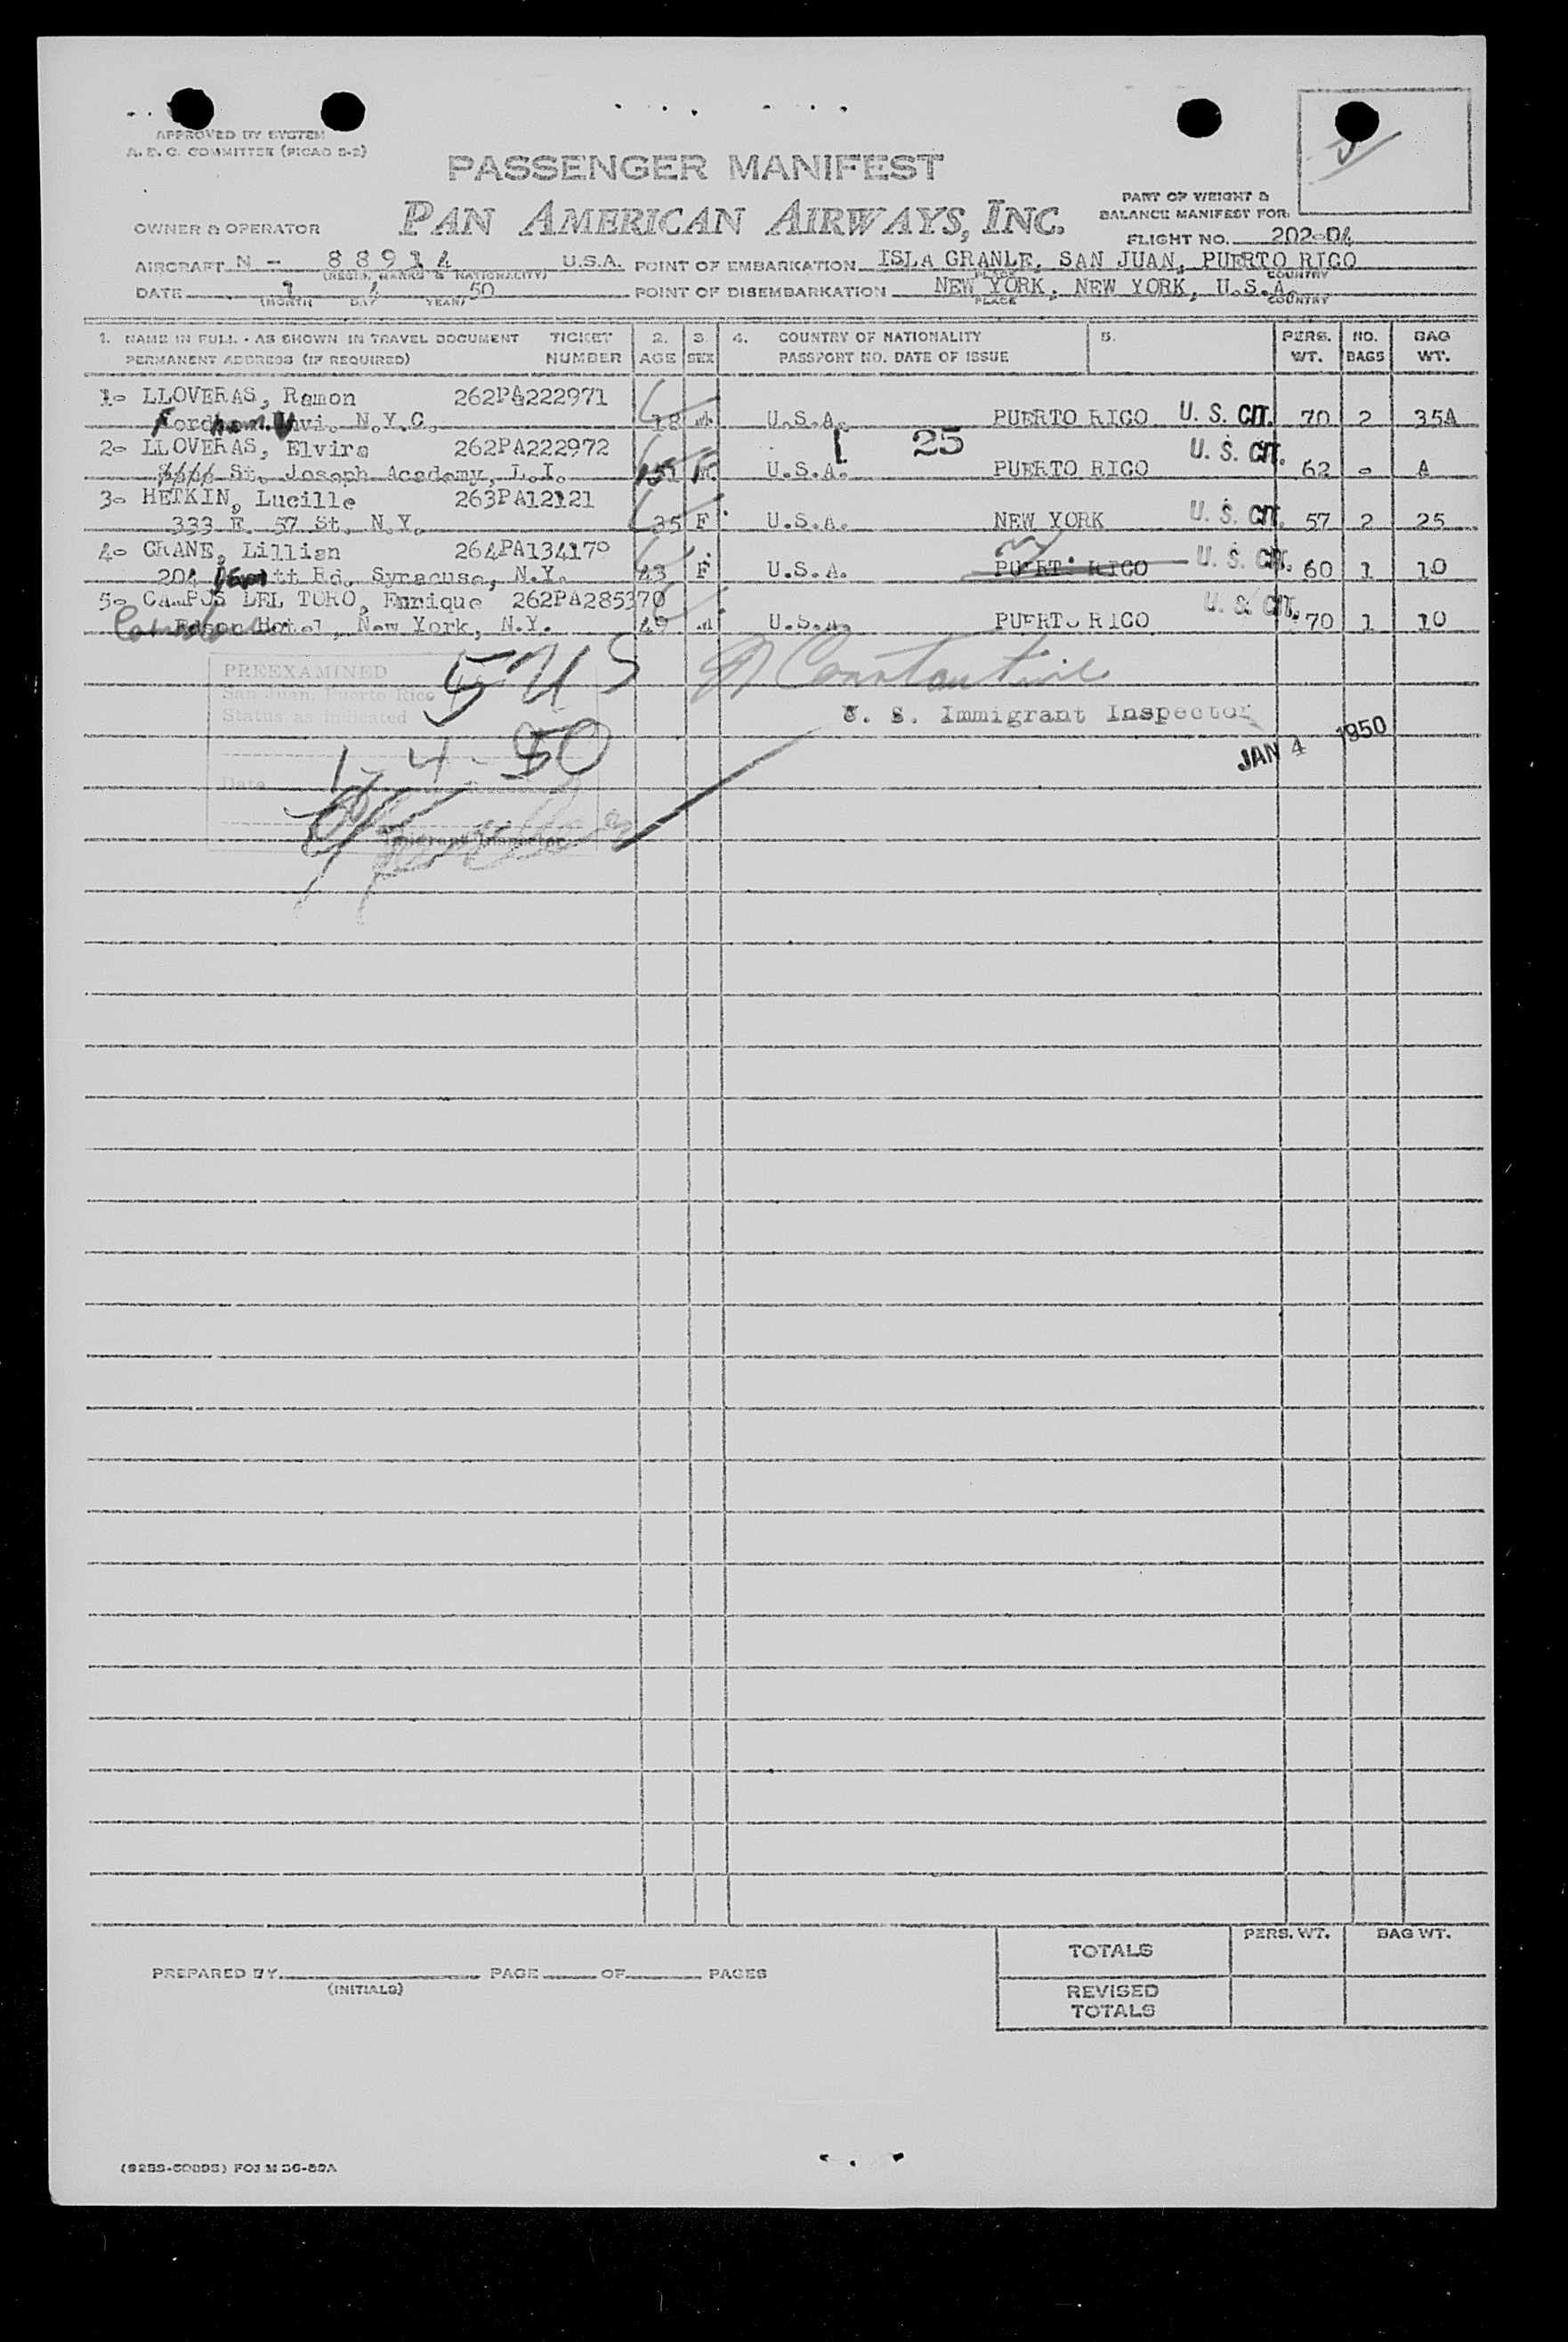 APPROVED BY SYSTEM
A. E. C. COMMITTEE (PICAO S-2)
PASSENGER MANIFEST
PART OF WEIGHT &
BALANCE MANIFEST FOR:
OWNER & OPERATOR PAN AMERICAN AIRWAYS, INC.
FLIGHT NO. 202-04
AIRCRAFT N - 88914 U.S.A. POINT OF EMBARKATION ISLA GRANLE, SAN JUAN, PUERTO RICO
(REGIS. MARKS & NATIONALITY) PLACE COUNTRY
DATE 1 4 50 POINT OF DISEMBARKATION NEW YORK, NEW YORK, U.S.A.
(MONTH DAY YEAR) PLACE COUNTRY
1. NAME IN FULL - AS SHOWN IN TRAVEL DOCUMENT TICKET 2. 3. 4. COUNTRY OF NATIONALITY 5. PERS. NO. BAG
PERMANENT ADDRESS (IF REQUIRED) NUMBER AGE SEX PASSPORT NO. DATE OF ISSUE WT. BAGS WT.
1- LLOVERAS, Ramon 262PA222971
Fordham Unvi. N.Y.C. 18 M U.S.A. PUERTO RICO U. S. CIT. 70 2 35A
2- LLOVERAS, Elvira 262PA222972 25 U. S. CIT.
St. Joseph Academy, L.I. U.S.A. PUERTO RICO 62 - A
3- HETKIN, Lucille 263PA12121
333 E. 57 St. N.Y. 35 F U.S.A. NEW YORK U. S. CIT. 57 2 25
4- CRANE, Lillian 264PA134170 NY
204 Rd. Syracuse, N.Y. 43 F U.S.A. PUERTO RICO U. S. CIT. 60 1 10
5- CAMPOS DEL TORO, Enrique 262PA285370 U. S. CIT.
Hotel, New York, N.Y. 49 M U.S.A. PUERTO RICO 70 1 10
PREEXAMINED 5 US
San Juan, Puerto Rico
Status as indicated
Constantine
U. S. Immigrant Inspector
JAN 4 1950
Date 1-4-50
Immigrant Inspector
TOTALS PERS. WT. BAG WT.
PREPARED BY PAGE OF PAGES
(INITIALS)
REVISED
TOTALS